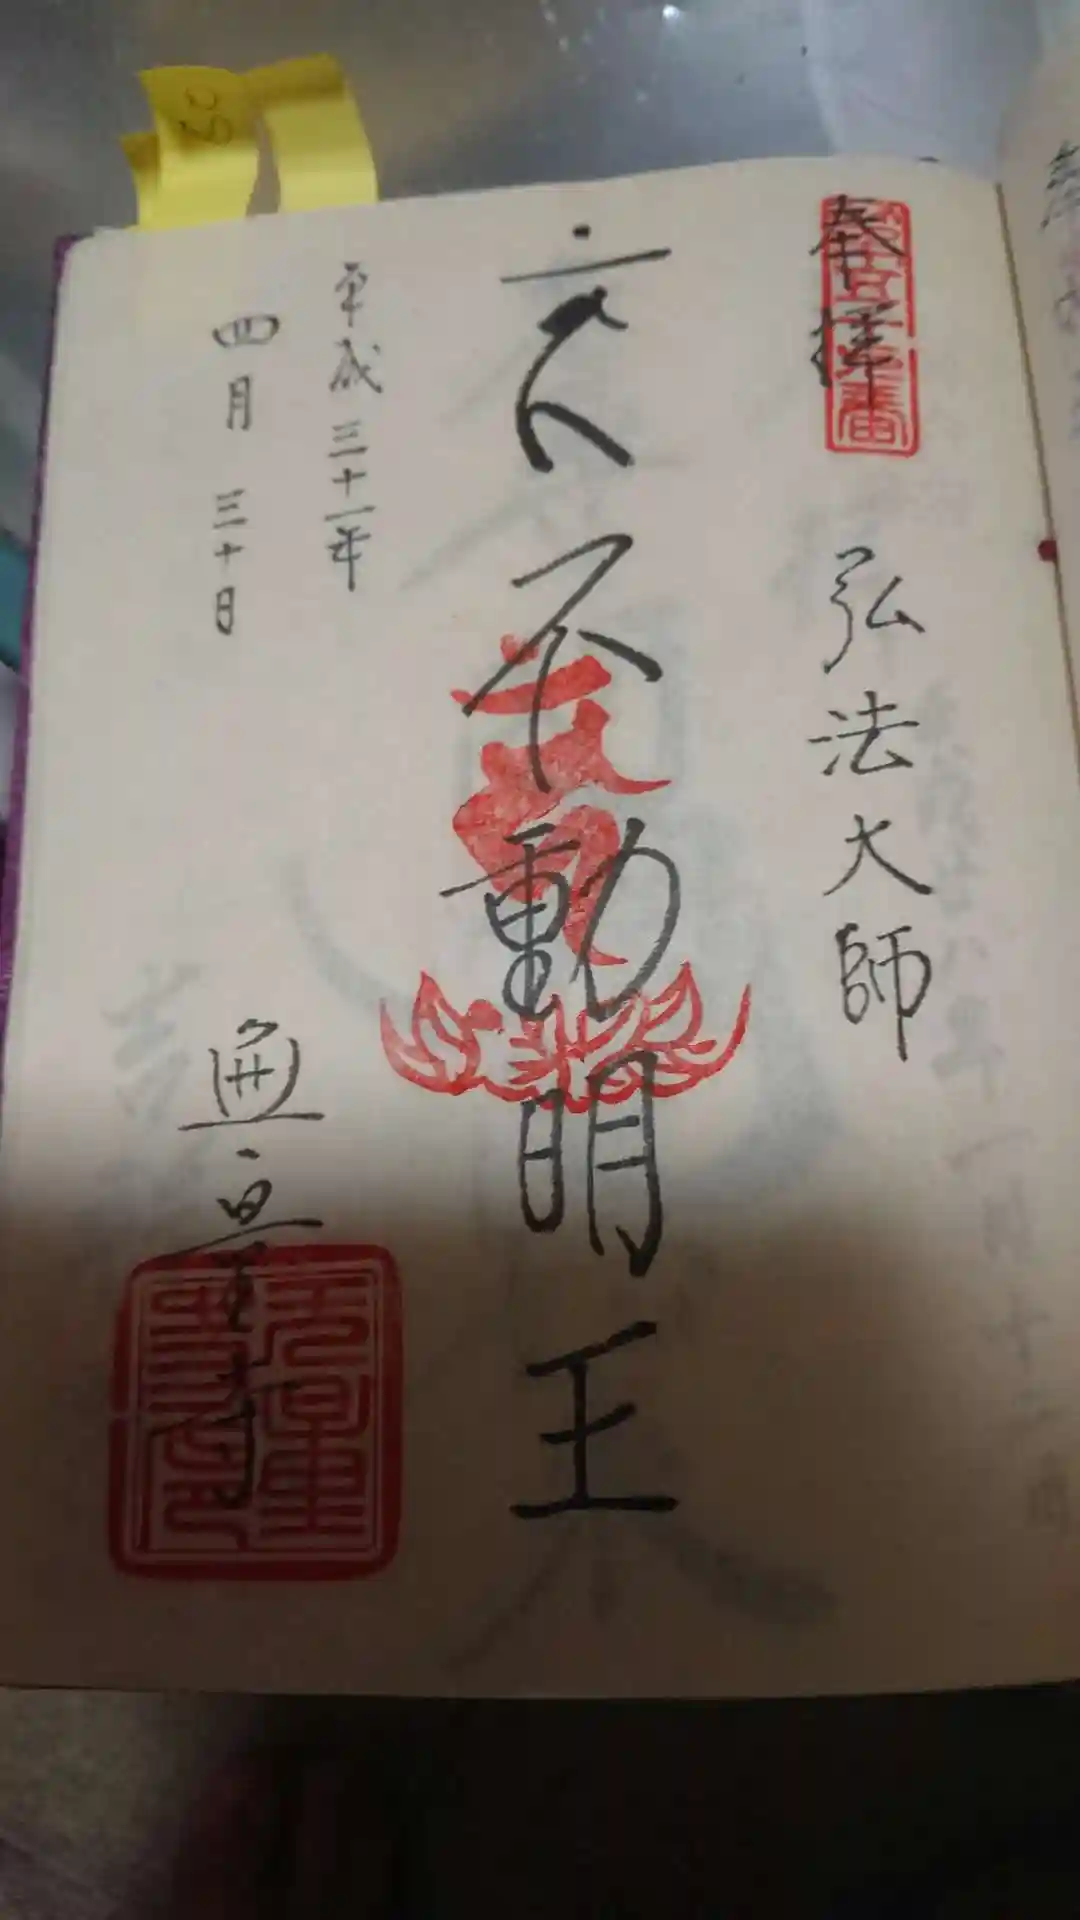 奉拝
弘法大師
不動明王
平成三十一年
四月三十日
無量寺